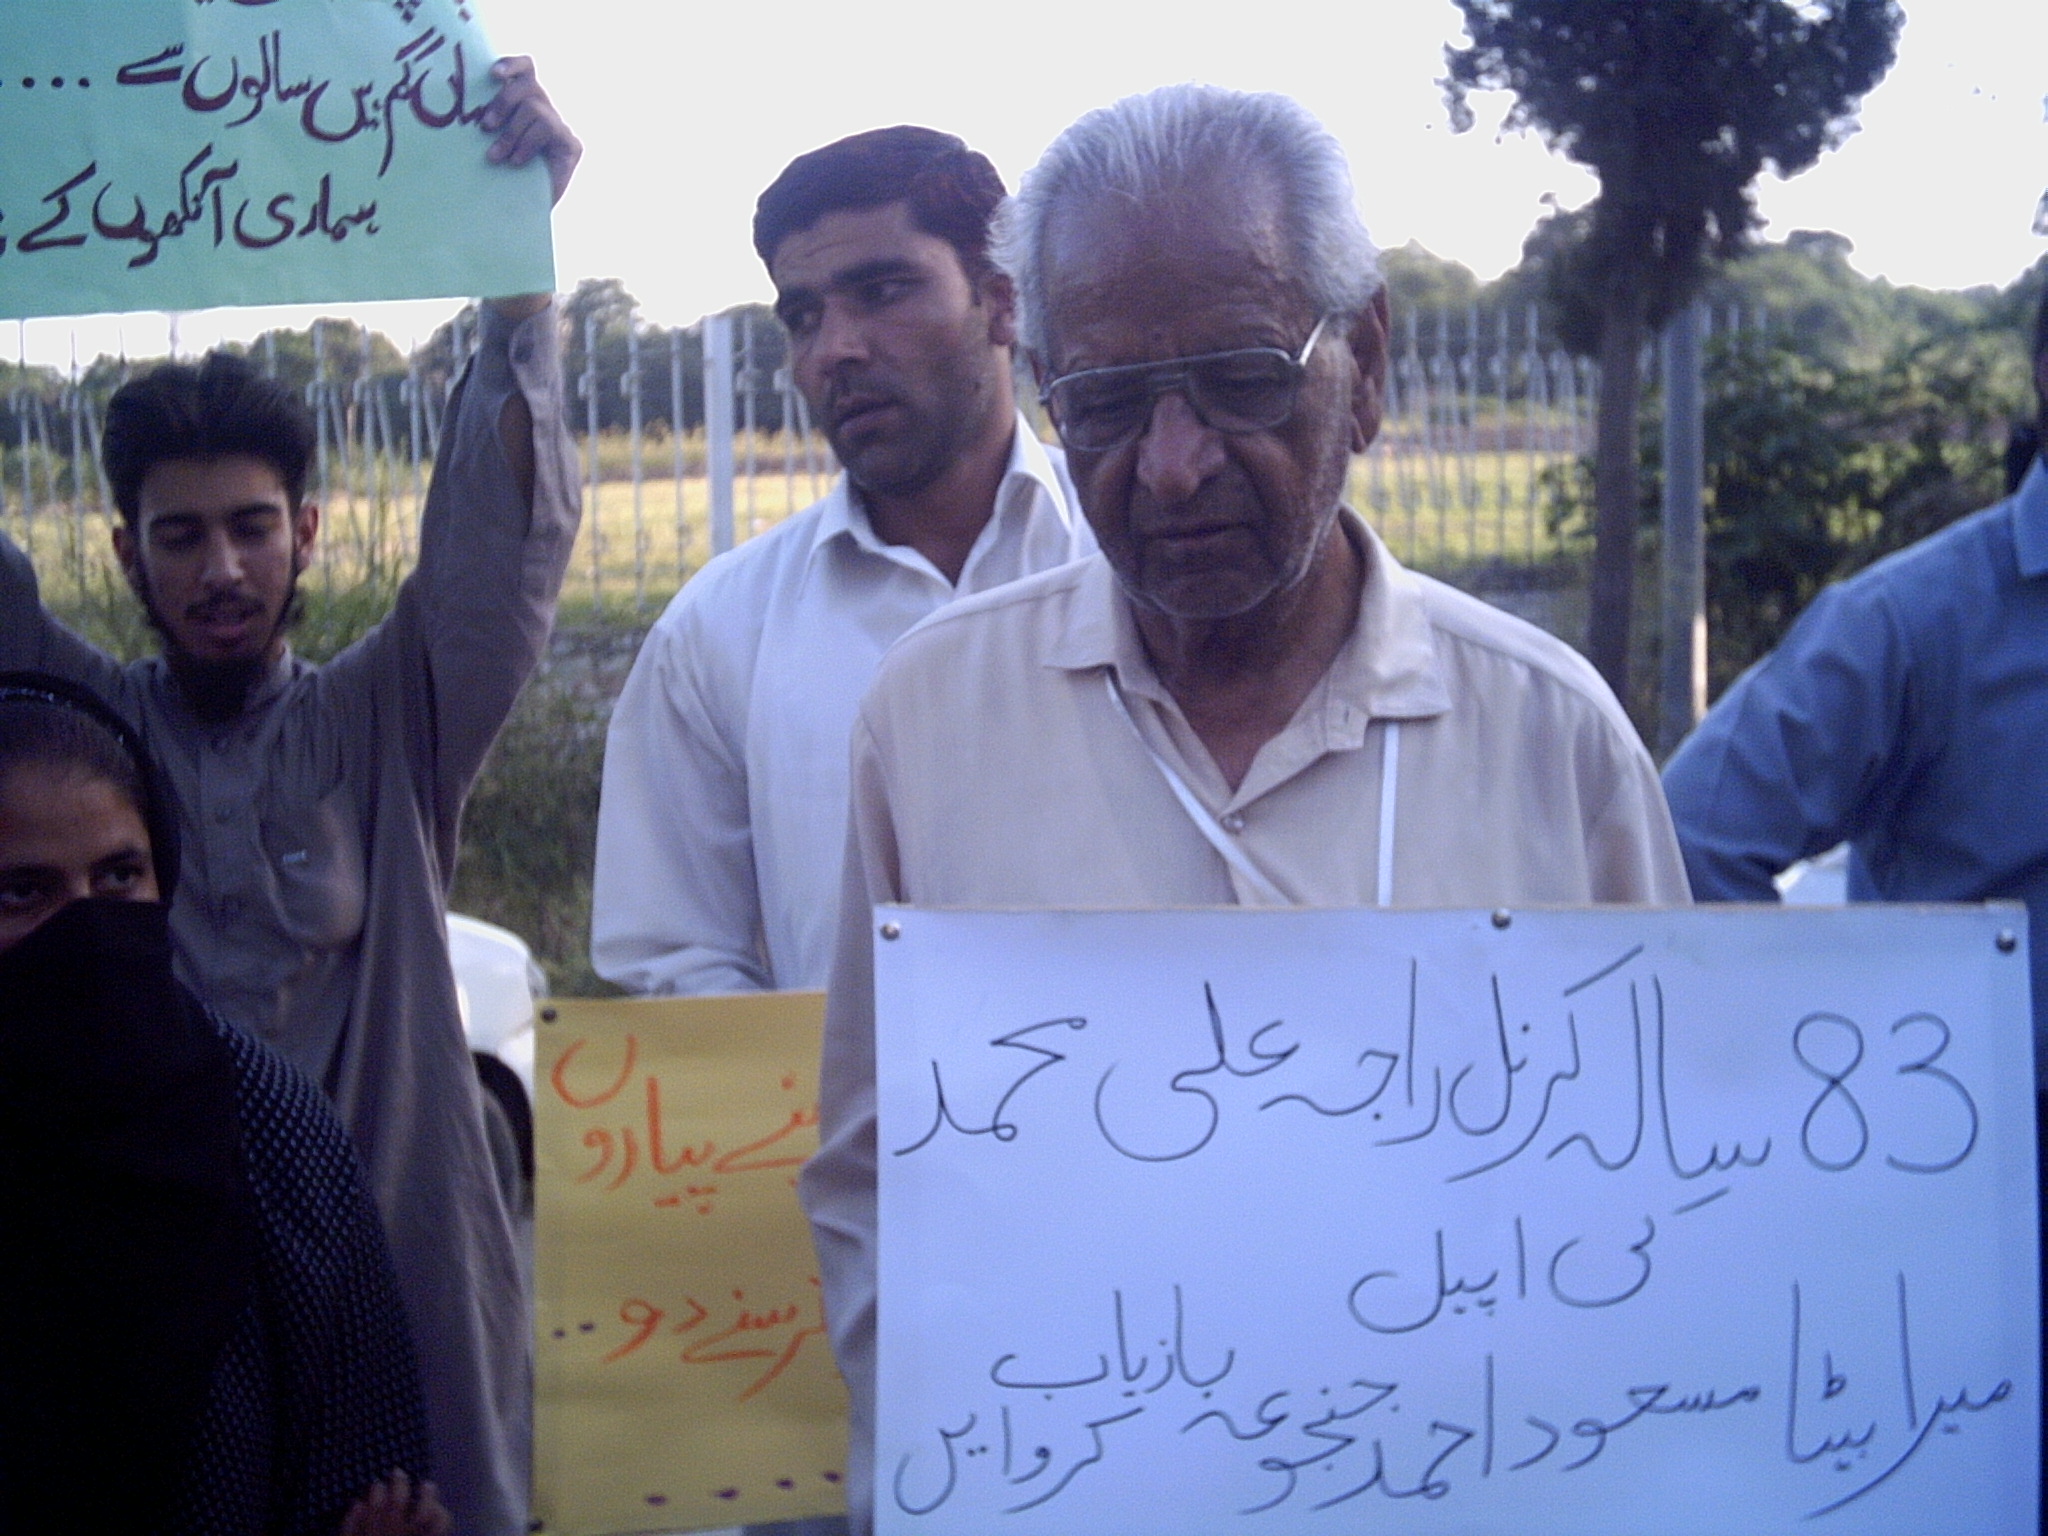 گم ہیں سالوں سے ....
ہماری آنکھوں کے
پیاروں
دو..
....
83 سالہ کرنل راجہ علی محمد
کی اپیل
میرا بیٹا مسعود احمد جنجوعہ بازیاب
کروایں